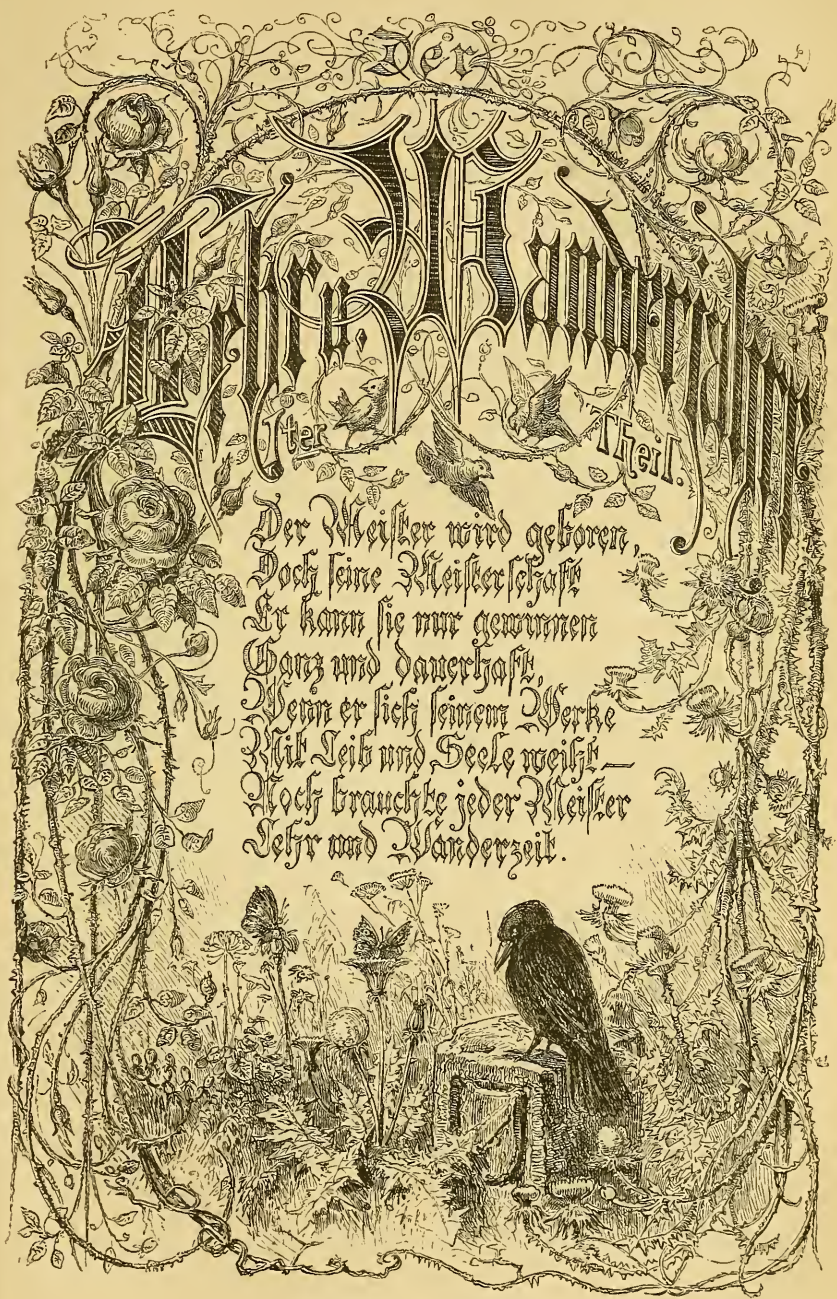 Der
Lehr u. Wanderjahre
Theil.
Der Meister wird geboren,
Doch seine Meisterschaft
Er kann sie nur gewinnen
Ganz und dauerhaft,
Wenn er sich seinem Werke
Mit Leib und Seele weiht—
Noch brauchte jeder Meister
Lehr und Wanderzeit.